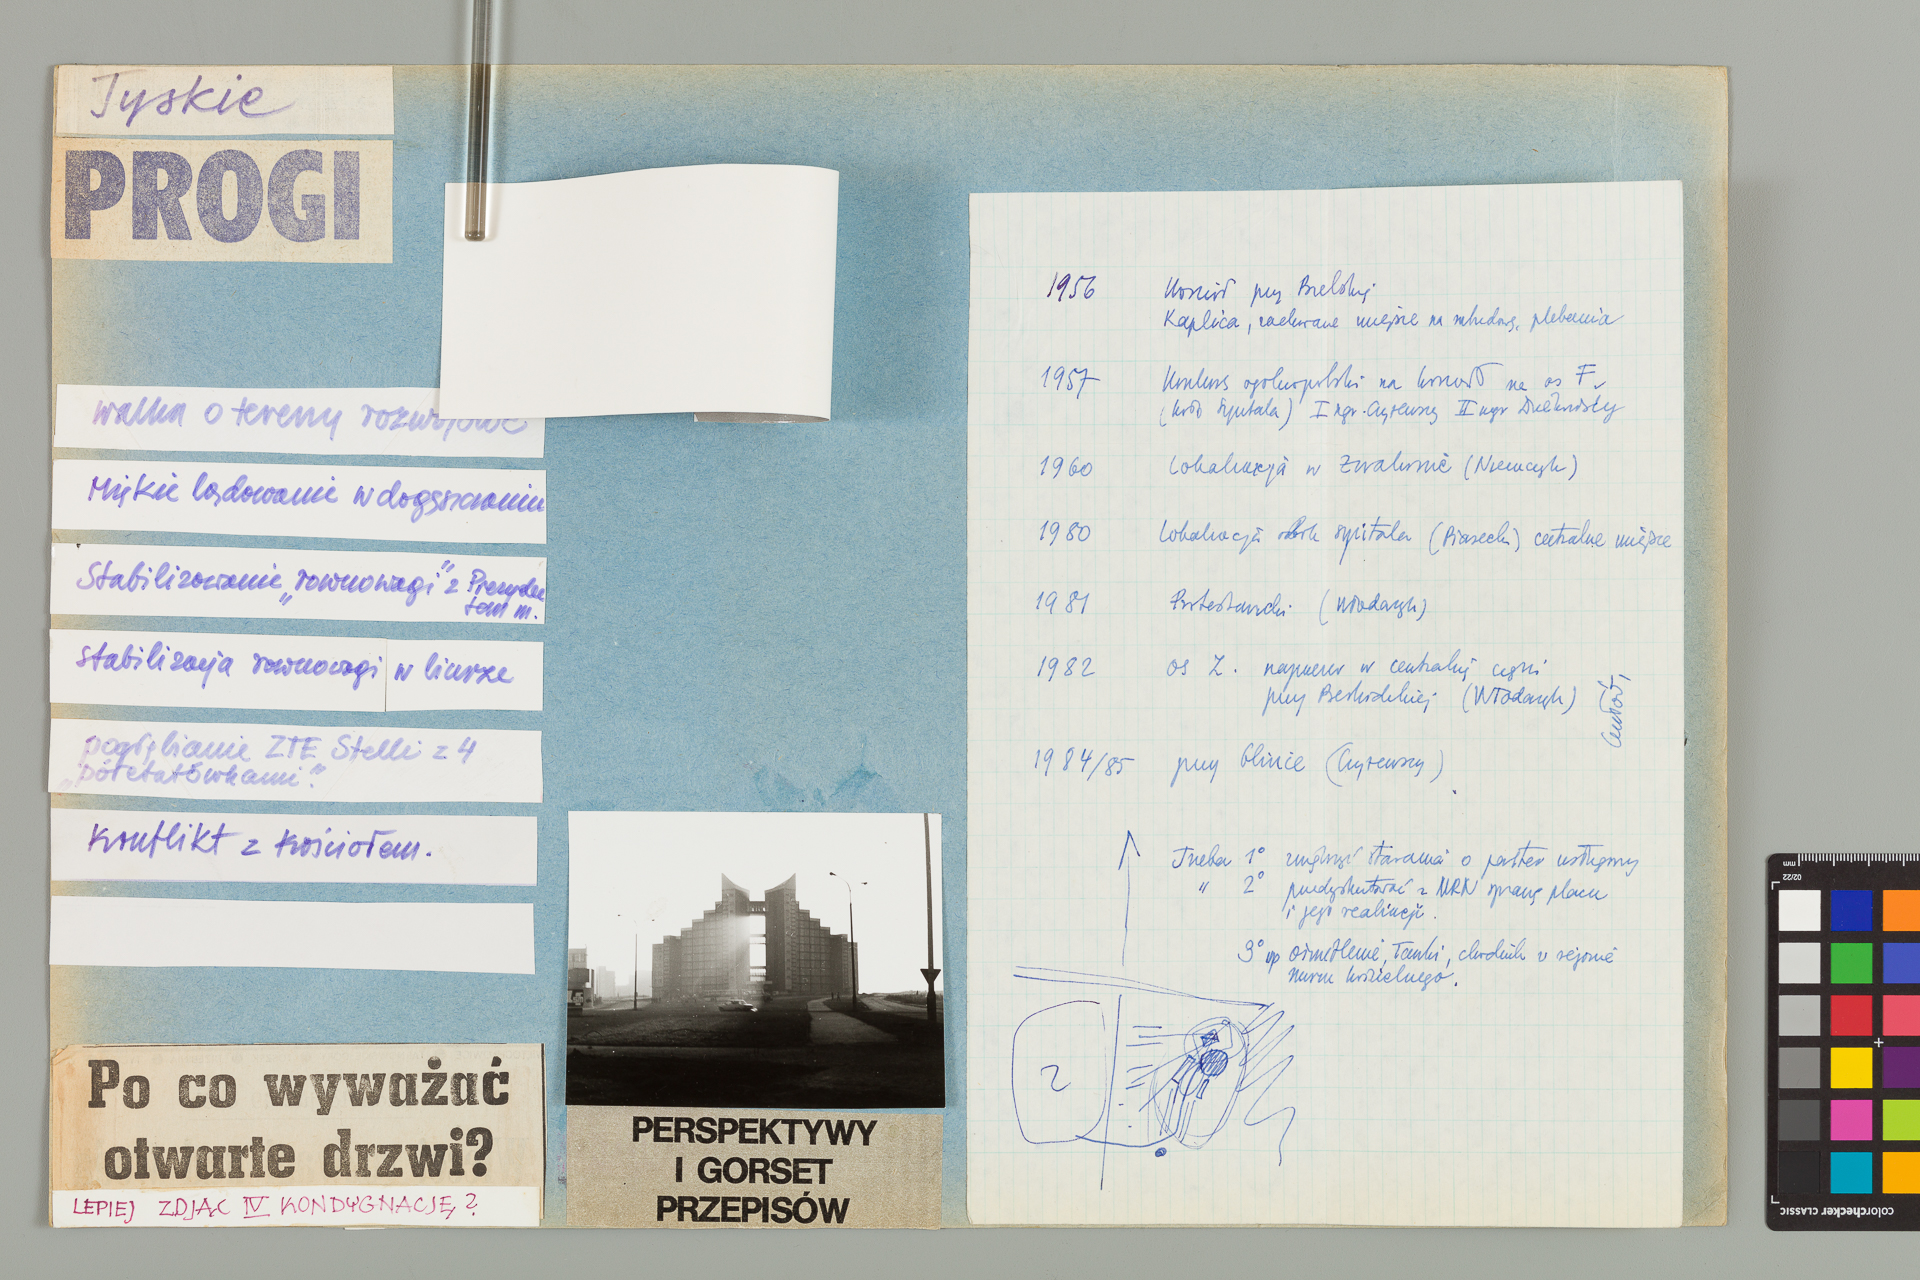 Tyskie
PROGI
walka o tereny rozwojowe
Miękie lądowanie w dogęszczaniu
Stabilizowanie „rownowagi" z Prezyden
tem m.
stabilizacja rownowagi w biurze
pogłębianie ZTE Stelli z 4
„półetatówkami".
Konflikt z Kościołem.
Po co wyważać
otwarte drzwi?
LEPIEJ ZDJĄĆ IV KONDYGNACJĘ?
PERSPEKTYWY
I GORSET
PRZEPISÓW
1956 Kościół przy
Kaplica, miejsce na plebania
1957 Konkurs ogólnopolski na kościół na os F
(koło szpitala) I ngr. Czyżewski II ngr
1960 Lokalizacja w Zwakowie (Niemczyk)
1980 Lokalizacja obok szpitala (Piasecki) centralne miejsce
1981 Protestancki (Włodarczyk)
1982 os Z. najpierw w centralnej części
przy Beskidzkiej (Włodarczyk)
1984/85 przy Glince (Czyżewski)
Trzeba 1° zwiększyć starania o parter usługowy
" 2° przedyskutować z MRN sprawę placu
i jego realizacji.
3° op oświetlenie, ławki, chodnik w rejonie
muru kościelnego.
Z
mm
02/22
colorchecker CLASSIC